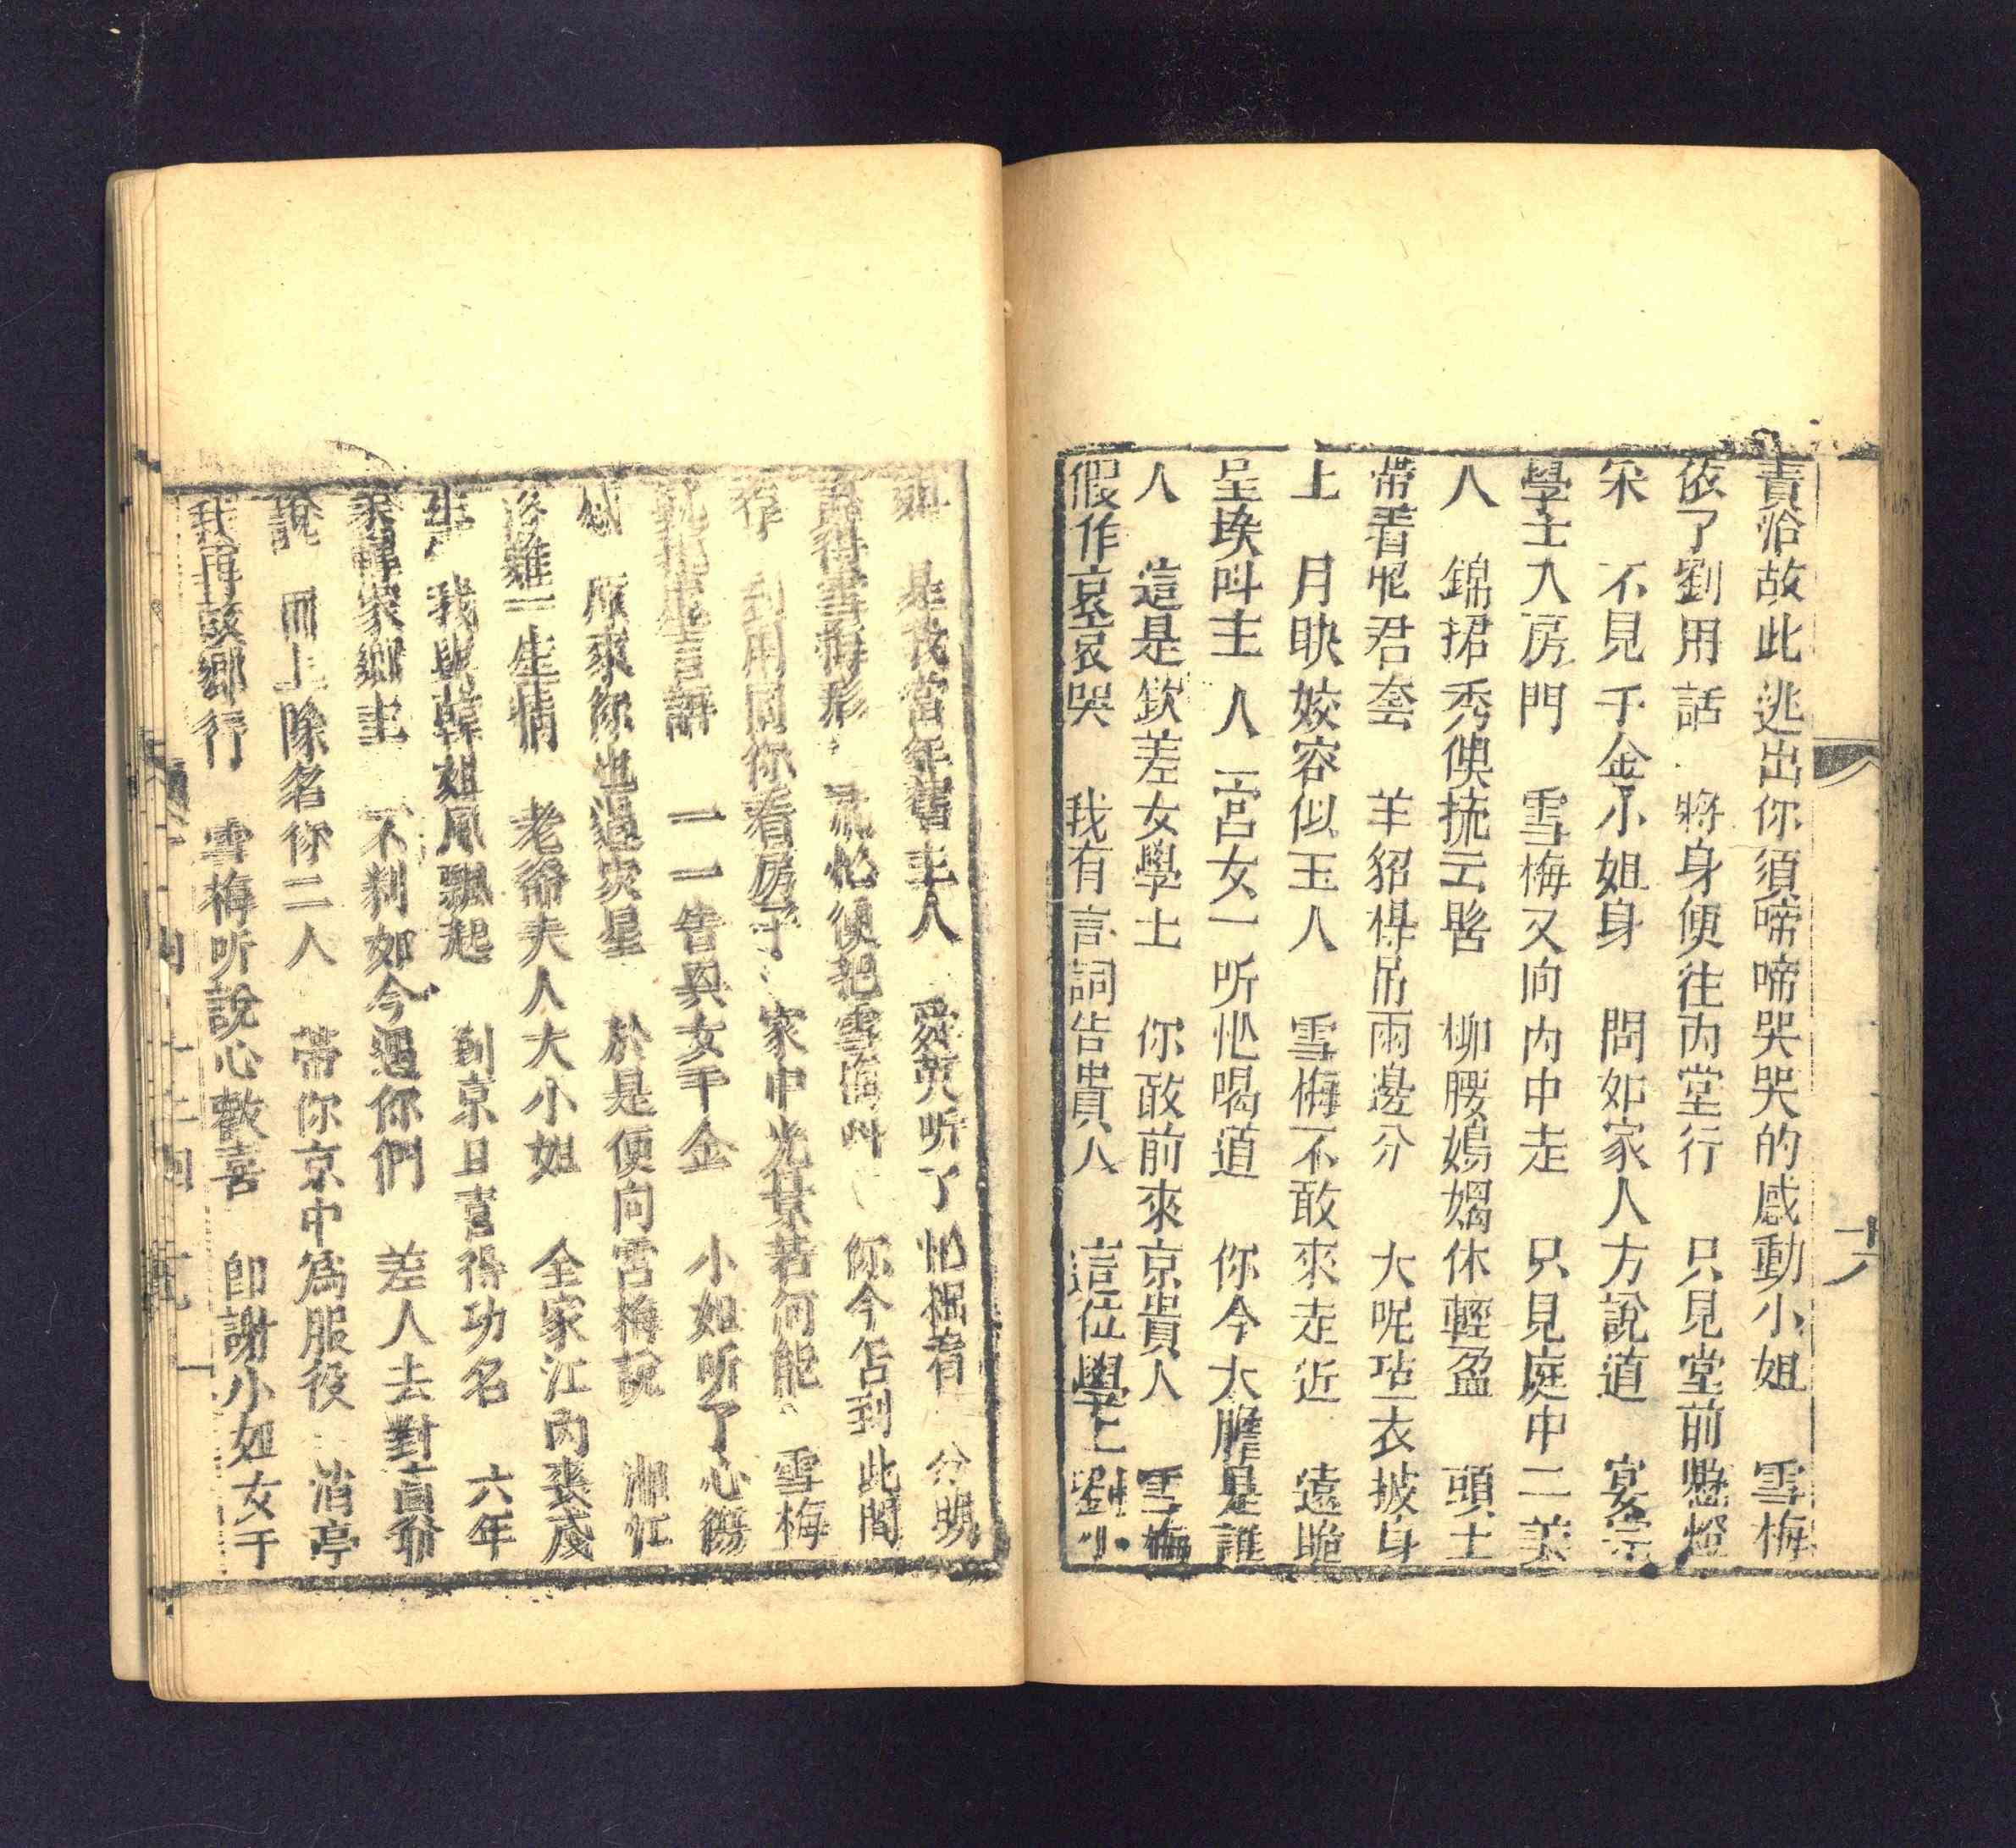 責治故此逃出你須啼啼哭哭的感動小姐　雪梅
依了劉用話　將身便往內堂行　只見堂前懸燈
彩　不見千金小姐身　問如家人方說道　宴完
學士入房門　雪梅又向內中走　只見庭中二美
人　錦裙秀　云髻　柳腰嬝嬝休輕盈　頭上
帶看昭君套　羊貂　吊兩邊分　大呢　衣披身
上　月映姣容似玉人　雪梅不敢來走近　遠跪
呈埃叫主人　宮女一听忙喝道　你今大膽是誰
人　這是欽差女學士　你敢前來京貴人　雪梅
假作哀哀哭　我有言詞告貴人　這位學士劉小
十六
姐　是我當年舊主人　愛英听了忙　看　分明
認得雪梅形　忙便把雪梅叫　你今怎到此間
存　劉用同你看房子　家中光景若何能　雪梅
就把虛言講　一一告與女千金　小姐听了心傷
感　原來你也遇灾星　於是便向雪梅說　湘江
落難一生情　老爺夫人大小姐　全家江內喪殘
生　我與韓姐風飄起　到京　得功名　六年
家鄉　不料如今遇你們　差人去對
說　冊上除名你二人　帶你京中為服役　消亭
我再故鄉行　雪梅听說心歡喜　即謝小姐女千